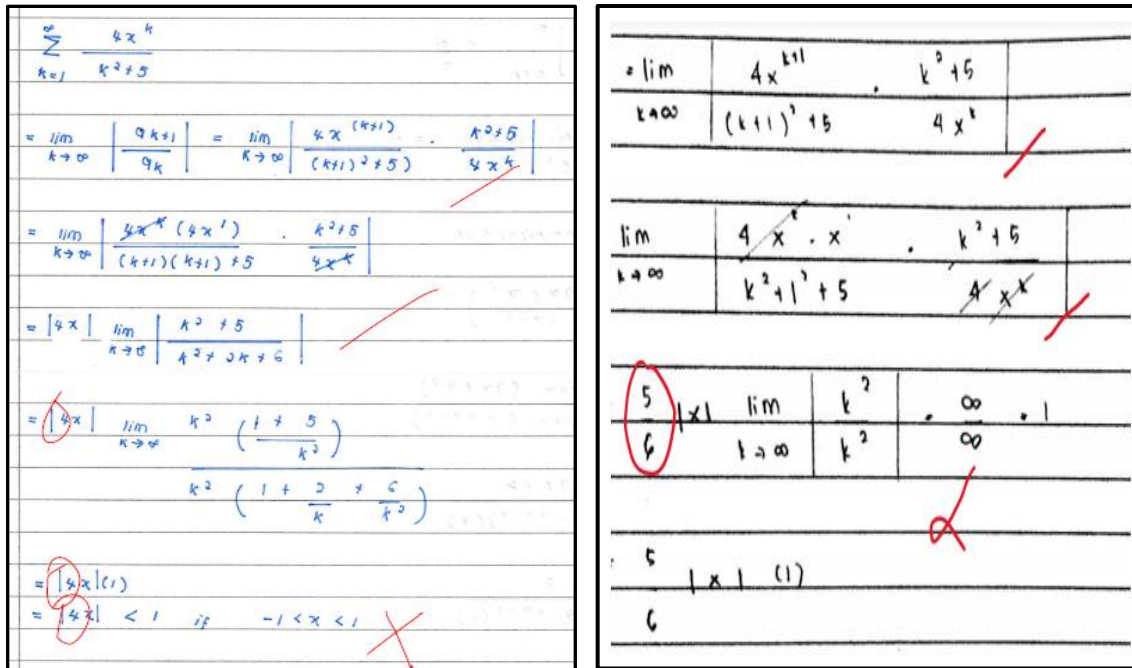 ∞
Σ 4x^k / k²+5
k=1
= lim k→∞ | a_k+1 / a_k | = lim k→∞ | 4x^(k+1) / (k+1)²+5) · k²+5 / 4x^k |
= lim k→∞ | 4x^k (4x¹) / (k+1)(k+1)+5 · k²+5 / 4x^k |
= |4x| lim k→∞ | k²+5 / k²+2k+6 |
= |4x| lim k→∞ k² (1 + 5 / k²) / k² (1 + 2/k + 6/k²)
= |4x|(1)
= |4x| < 1 if -1 < x < 1
= lim k→∞ | 4x^k+1 / (k+1)²+5 · k²+5 / 4x^k |
lim k→∞ | 4 x^k · x¹ / k²+1²+5 · k²+5 / 4 x^k |
5/6 |x| lim k→∞ | k² / k² | = ∞/∞ = 1
5/6 |x| (1)